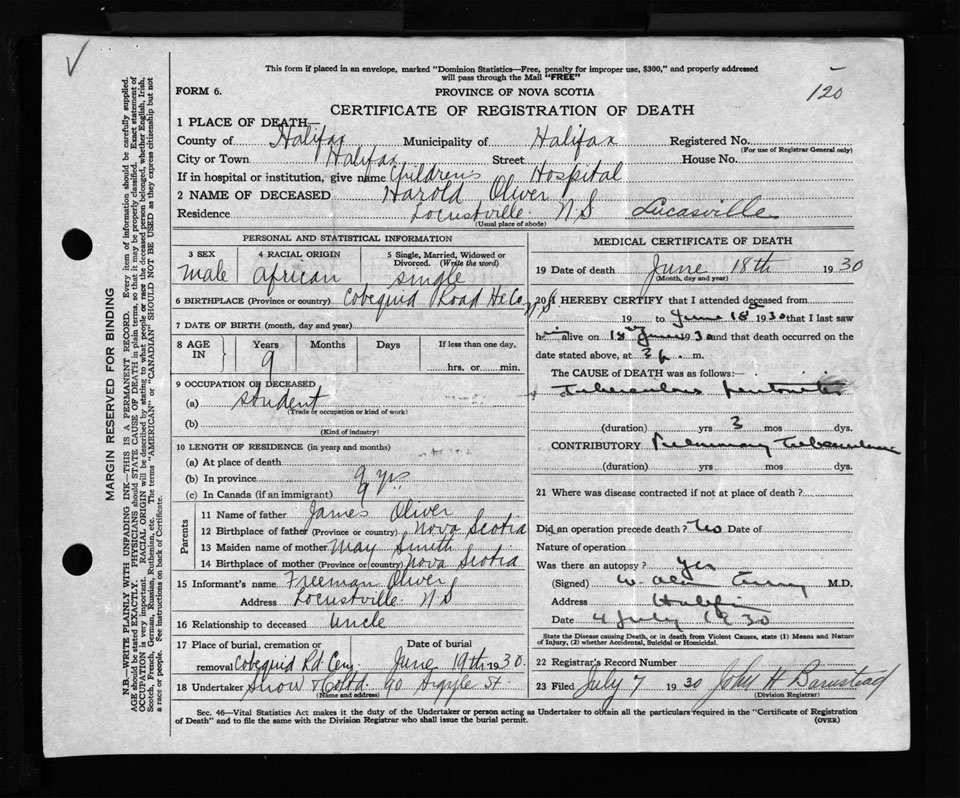 This form if placed in an envelope, marked "Dominion Statistics—Free, penalty for improper use, $300," and properly addressed
will pass through the Mail "FREE"
FORM 6.
PROVINCE OF NOVA SCOTIA
120
CERTIFICATE OF REGISTRATION OF DEATH
1 PLACE OF DEATH—
County of Halifax Municipality of Halifax Registered No.
(For use of Registrar General only)
City or Town Halifax Street House No.
If in hospital or institution, give name Children's Hospital
2 NAME OF DECEASED Harold Oliver
Residence Locustville N S Lucasville
(Usual place of abode)
PERSONAL AND STATISTICAL INFORMATION
3 SEX 4 RACIAL ORIGIN 5 Single, Married, Widowed or
Divorced. (Write the word)
male African single
6 BIRTHPLACE (Province or country) Cobequid Road Hx Co N S
7 DATE OF BIRTH (month, day and year)
8 AGE IN Years Months Days If less than one day,
9 hrs. or min.
9 OCCUPATION OF DECEASED
(a) student
(Trade or occupation or kind of work)
(b)
(Kind of industry)
10 LENGTH OF RESIDENCE (in years and months)
(a) At place of death
(b) In province 9 yrs
(c) In Canada (if an immigrant) 9
Parents
11 Name of father James Oliver
12 Birthplace of father (Province or country) Nova Scotia
13 Maiden name of mother May Smith
14 Birthplace of mother (Province or country) Nova Scotia
15 Informant's name Freeman Oliver
Address Locustville N S
16 Relationship to deceased Uncle
17 Place of burial, cremation or Date of burial
removal Cobequid Rd Cem. June 19th 1930.
18 Undertaker Snow & Co Ltd 90 Argyle St.
(Name and address)
MEDICAL CERTIFICATE OF DEATH
19 Date of death June 18th 1930
(Month, day and year)
20 I HEREBY CERTIFY that I attended deceased from
19 to June 18th 1930 that I last saw
him alive on 18th June 1930 and that death occurred on the
date stated above, at 3 p. m.
The CAUSE OF DEATH was as follows:—
Tuberculous peritonitis
(duration) yrs 3 mos dys.
CONTRIBUTORY Pulmonary Tuberculosis
(duration) yrs. mos. dys.
21 Where was disease contracted if not at place of death?
Did an operation precede death? No Date of
Nature of operation
Was there an autopsy? Yes
(Signed) W. M.D.
Address Halifax
Date 4 July 1930
State the Disease causing Death, or in death from Violent Causes, state (1) Means and Nature
of Injury, (2) whether Accidental, Suicidal or Homicidal.
22 Registrar's Record Number
23 Filed July 7 1930 John H Barnstead
(Division Registrar)
Sec. 46—Vital Statistics Act makes it the duty of the Undertaker or person acting as Undertaker to obtain all the particulars required in the "Certificate of Registration
of Death" and to file the same with the Division Registrar who shall issue the burial permit.
(OVER)
MARGIN RESERVED FOR BINDING
N.B.—WRITE PLAINLY WITH UNFADING INK—THIS IS A PERMANENT RECORD. Every item of information should be carefully supplied.
AGE should be stated EXACTLY. PHYSICIANS should STATE CAUSE OF DEATH in plain terms, so that it may be properly classified. Exact statement of
OCCUPATION is very important. RACIAL ORIGIN will be described by stating to what people or race the deceased person belonged, whether English, Irish,
Scotch, French, German, Russian, Ruthenian, etc. The terms "AMERICAN" or "CANADIAN" SHOULD NOT BE USED as they express citizenship but not
a race or people. See instructions on back of Certificate.